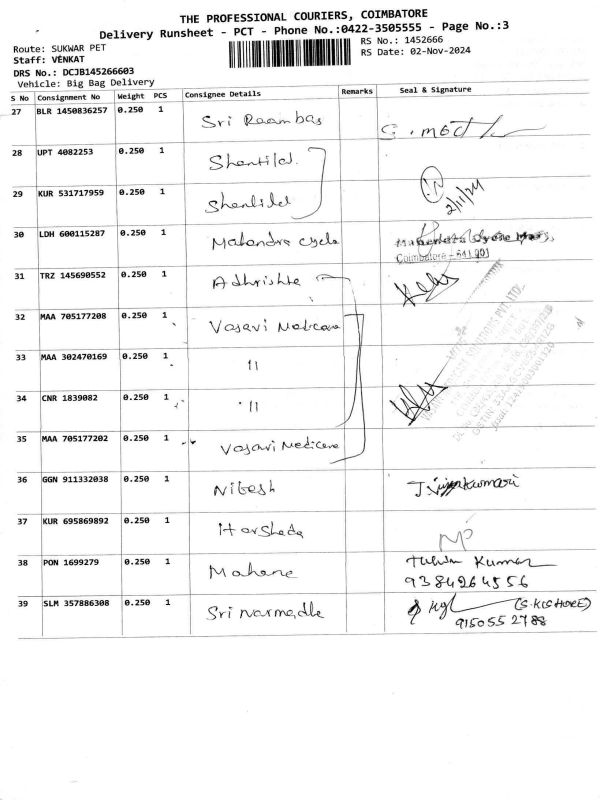 THE PROFESSIONAL COURIERS, COIMBATORE
Delivery Runsheet - PCT - Phone No.:0422-3505555 - Page No.:3
Route: SUKWAR PET
RS No.: 1452666
Staff: VENKAT
RS Date: 02-Nov-2024
DRS No.: DCJB145266603
Vehicle: Big Bag Delivery
S No Consignment No Weight PCS Consignee Details Remarks Seal & Signature
27 BLR 1450836257 0.250 1 Sri Raambas
28 UPT 4082253 0.250 1 Shantilal
29 KUR 531717959 0.250 1 Shantilal 2/11/24
30 LDH 600115287 0.250 1 Mahendra cycle
Coimbatore - 641 001
31 TRZ 145690552 0.250 1 Adhrishte
32 MAA 705177208 0.250 1 Vasavi Medicare
33 MAA 302470169 0.250 1 "
34 CNR 1839082 0.250 1 "
35 MAA 705177202 0.250 1 Vasavi Medicare
36 GGN 911332038 0.250 1 Nitesh J. Vijayakumari
37 KUR 695869892 0.250 1 Harshada
38 PON 1699279 0.250 1 Mahane Kumar
9384264556
39 SLM 357886308 0.250 1 Sri Narmadha (S. KISHORE)
9150552788